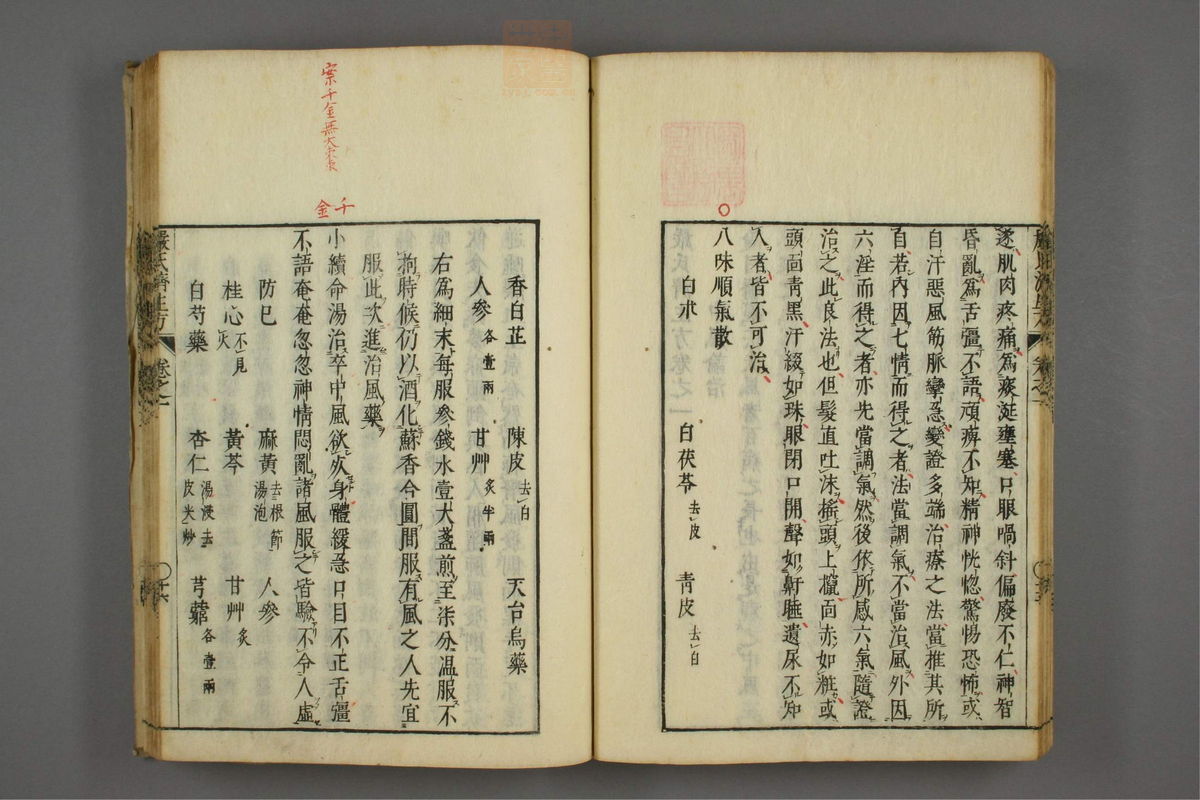 遂肌肉疼痛為痰涎壅塞口眼喎斜偏廢不仁神智
昏亂為舌彊不語頑痺不知精神恍惚驚惕恐怖或
自汗惡風筋脈攣急變證多端治療之法當推其所
自若内因七情而得之者法當調氣不當治風外因
六淫而得之者亦先當調氣然後依所感六氣隨證
治之此良法也但髮直吐沫搖頭上攛面赤如粧或
頭面青黑汗綴如珠眼閉口開聲如鼾睡遺尿不知
人者皆不可治
八味順氣散
白朮 白茯苓去皮 青皮去白
香白芷 陳皮去白 天台烏藥
人參各壹兩 甘艸炙半兩
右為細末每服參錢水壹大盞煎至柒分温服不
拘時候仍以酒化蘇香合圓間服有風之人先宜
服此次進治風藥
小續命湯治卒中風欲死身體緩急口目不正舌彊
不語奄奄忽忽神情悶亂諸風服之皆驗不令人虛
防已 麻黄去根節湯泡 人參
桂心不見火 黄芩 甘艸炙
白芍藥 杏仁湯浸去皮尖炒 芎藭各壹兩
嚴氏濟生方 卷之一
千金
案千金無大棗